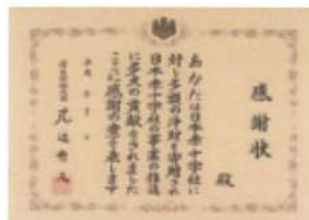 感謝状
殿
あなたは日本赤十字社に
対し多額の浄財を寄贈され
日本赤十字社の事業の推進
に多大の貢献をされました
ここに感謝の意を表します